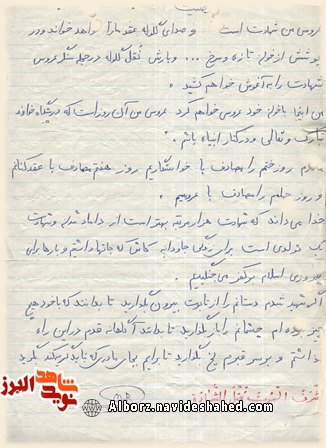 عروسی من شهادت است و صدای گلوله عقد مارا خواهد خواند و در
پوششی از خون تازه و سرخ ... و بارش نُقل گلوله در حجله سنگر عروس
شهادت را به آغوش خواهم کشید .
من اینجا با خون خود عروسی خواهم کرد عروسی من آن روز است که در پیشگاه خداوند
تبارک و تعالی و در کنار انبیاء باشم .
روز ختم را مصادف با خواستگاریم روز هفتم مصادف با عقد کنانم
و روز چهلم را مصادف با عروسیم .
خدا می داند که شهادت هزار مرتبه بهتر است از داماد شدن و شهادت
تولدی است برای زندگی جاودانه کاش که جانها داشتم و بارها برای
پیروزی اسلام بر کف می جنگیدم .
اگر شهید شدم دستانم را از تابوت بیرون گذارید تا بدانند که با خود هیچ
چیز نبرده ام چشمانم را باز بگذارید تا بدانند آگاهانه قدم در این راه
گذاشتم و بر سر قبرم یخ بگذارید تا برایم بجای مادری که نیاید گریه کند گرید
شرف
نوید شاهد البرز
Alborz.navideshahed.com